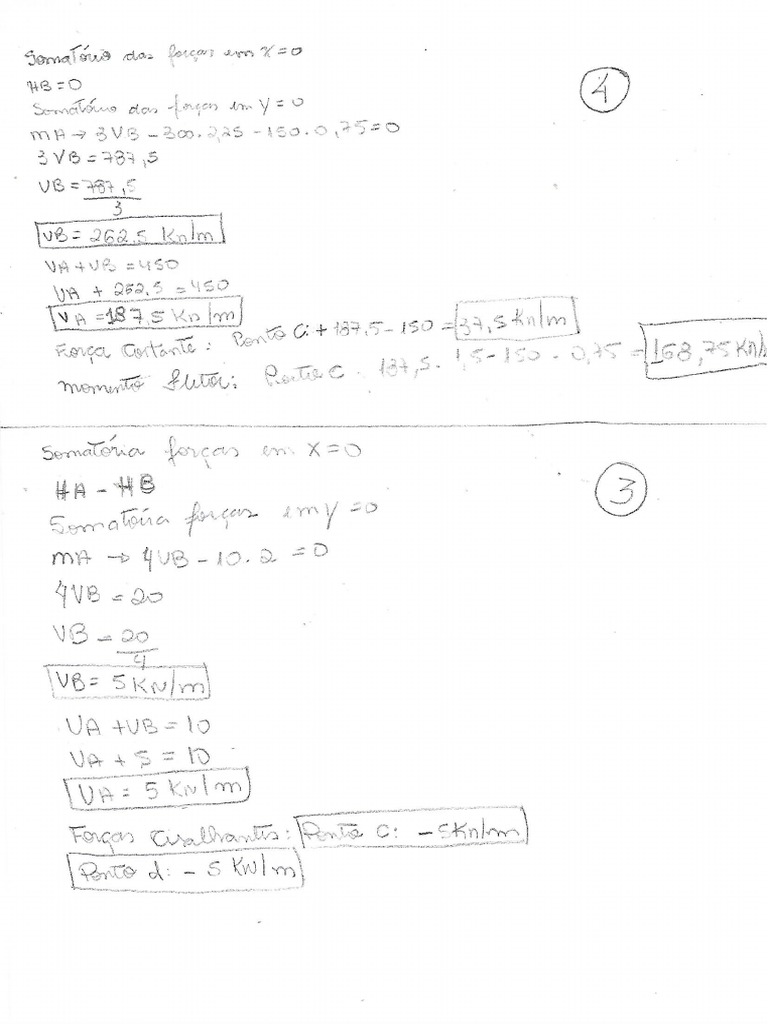 Somatório das forças em x=0
HB=0
4
Somatório das forças em y=0
mA → 3VB - 300.2,25 - 150.0,75=0
3VB=787,5
VB=787,5
3
VB= 262,5 Kn/m
VA+VB=450
VA + 262,5 = 450
VA=187,5 Kn/m
Força Cortante: Ponto C: + 187,5 - 150 = 37,5 Kn/m
momento fletor: Ponto C 187,5 . 1,5 - 150 . 0,75 = 168,75 Kn/
Somatória forças em X=0
HA - HB
3
Somatória forças em y=0
mA → 4VB - 10.2 =0
4VB = 20
VB = 20
4
VB= 5 KN/m
VA + VB = 10
VA + 5 = 10
VA = 5 KN/m
Forças Cisalhantes: Ponto C: -5Kn/m
Ponto d: - 5 KN/m